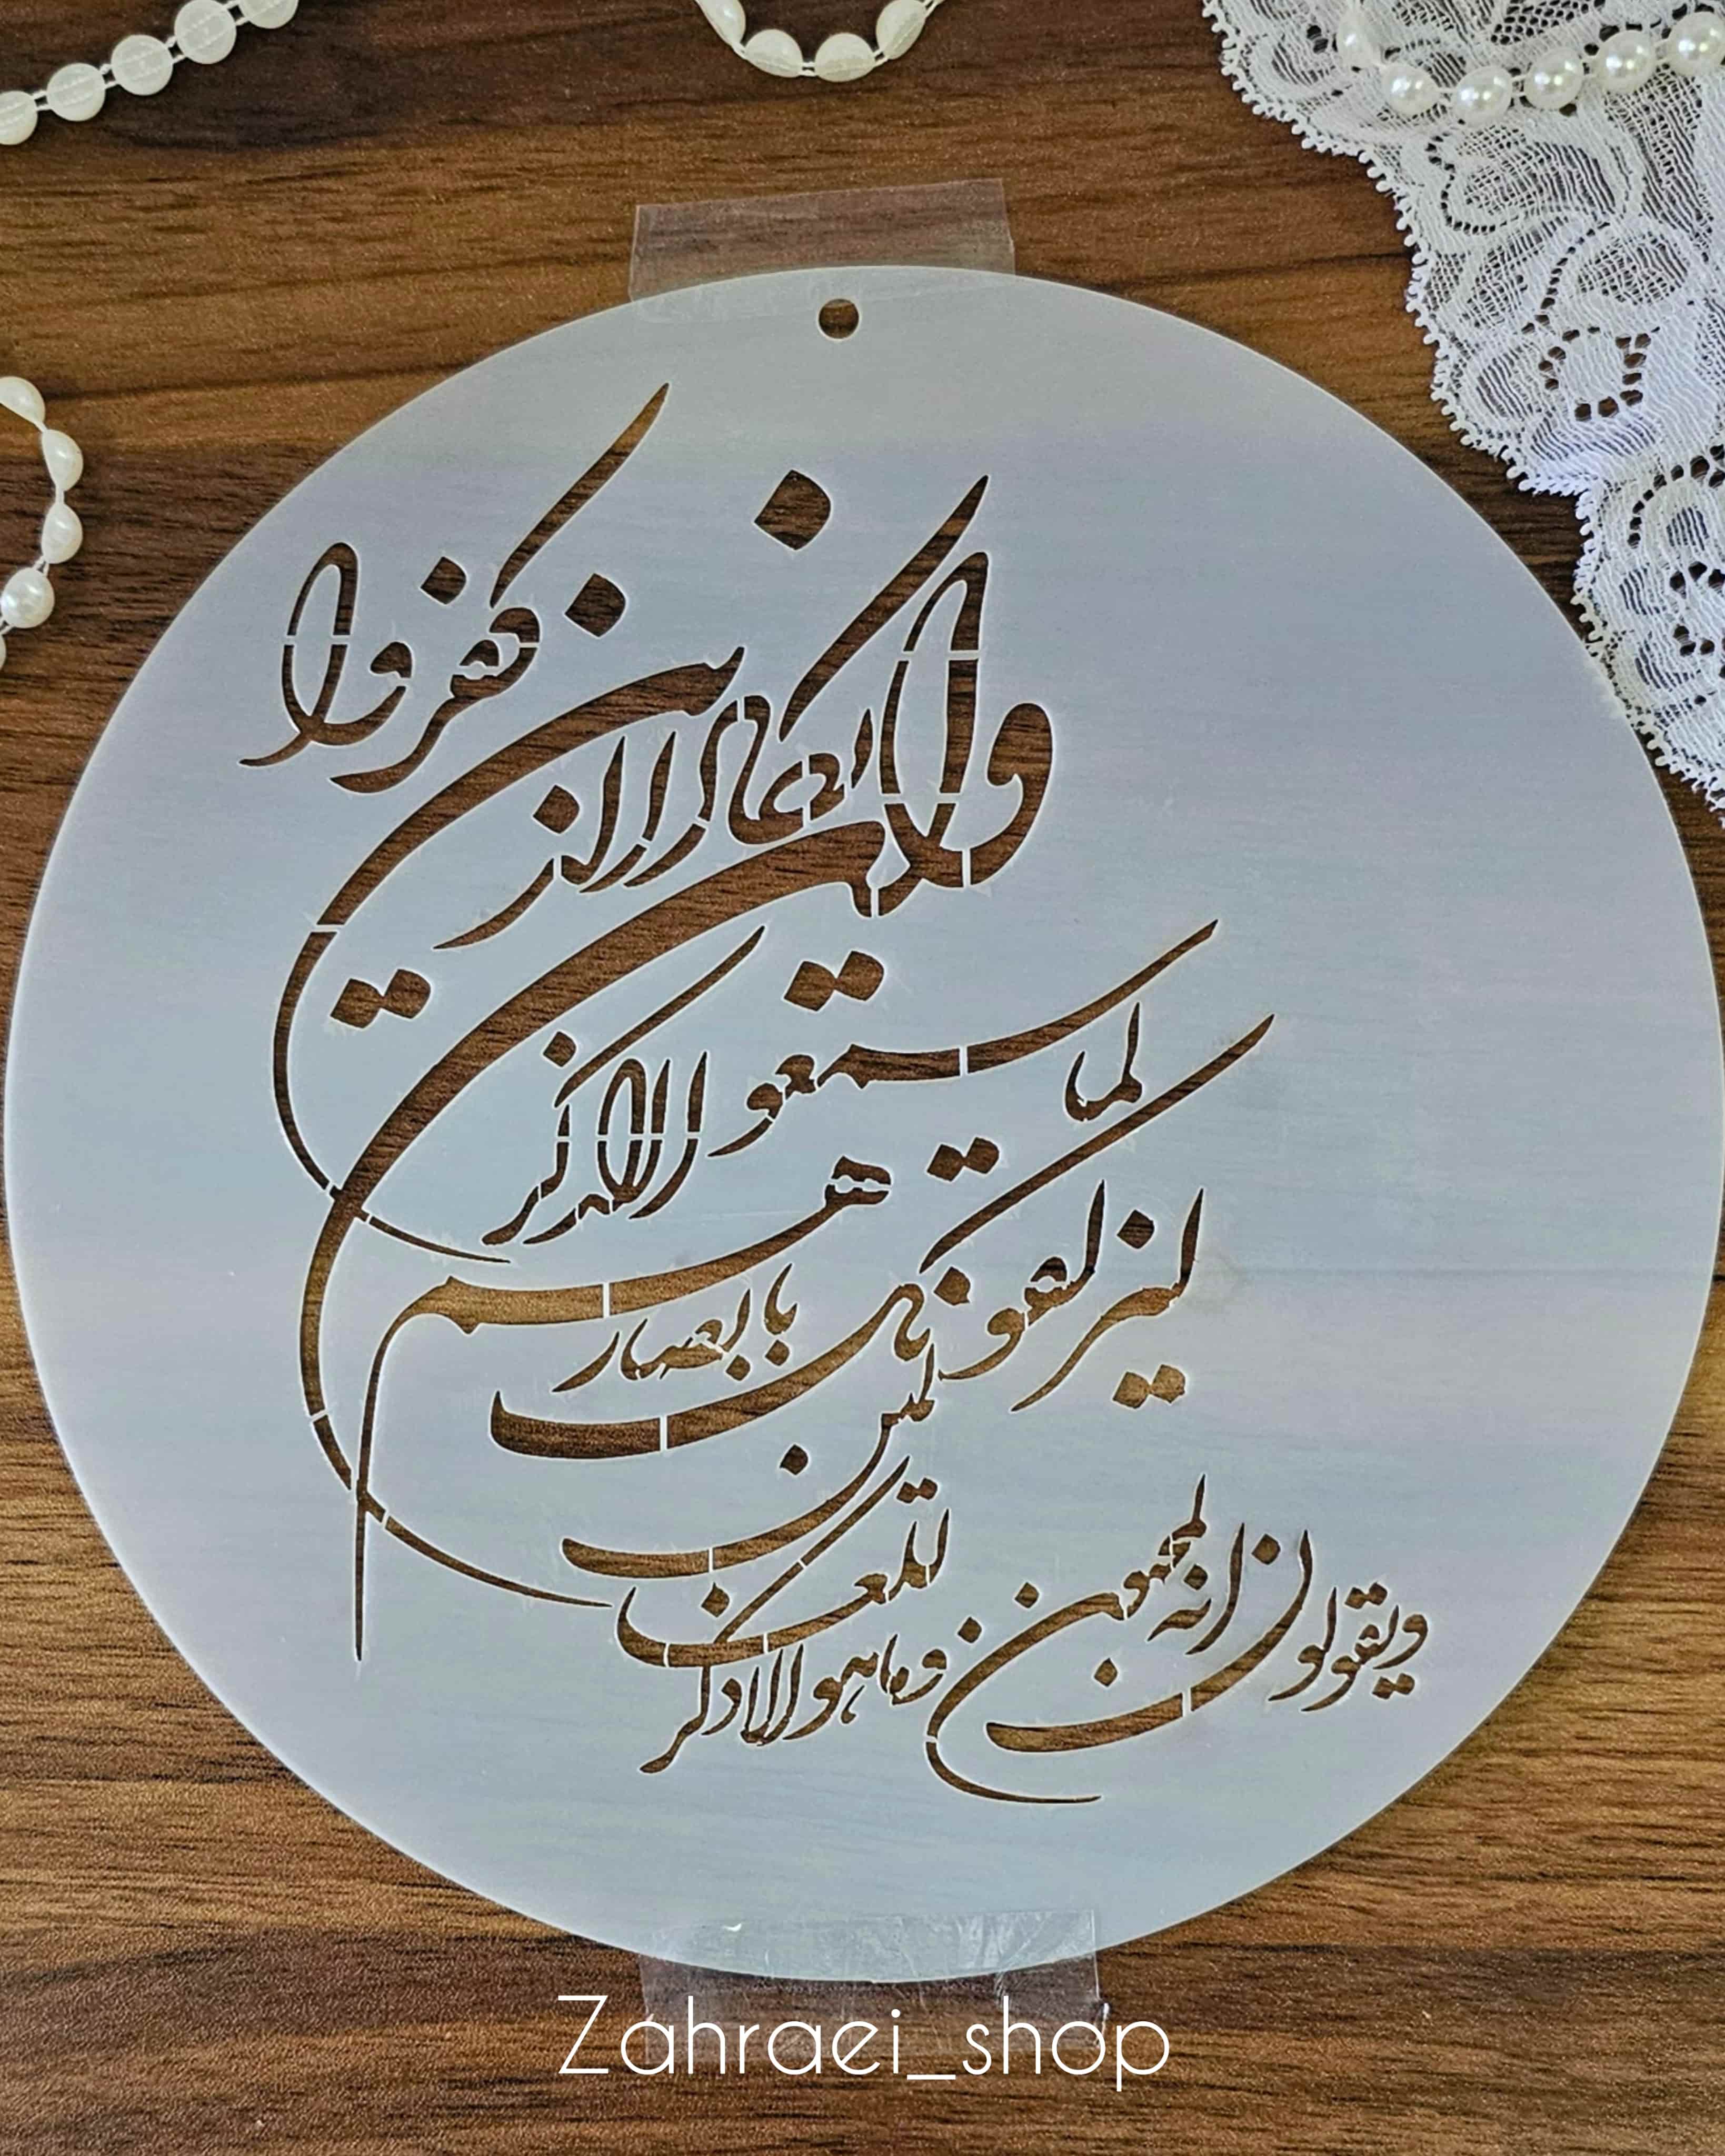 وان یکاد الذین کفروا
لیزلقونک بابصارهم
لما سمعوا الذکر
ویقولون انه لمجنون
وما هو الا ذکر
للعلمین
Zahraei_shop